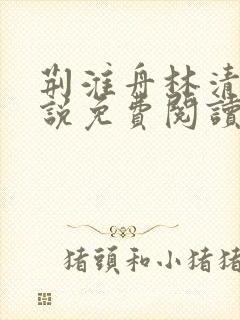 荆淮舟林清
說免費閱讀
猪頭和小猪猪